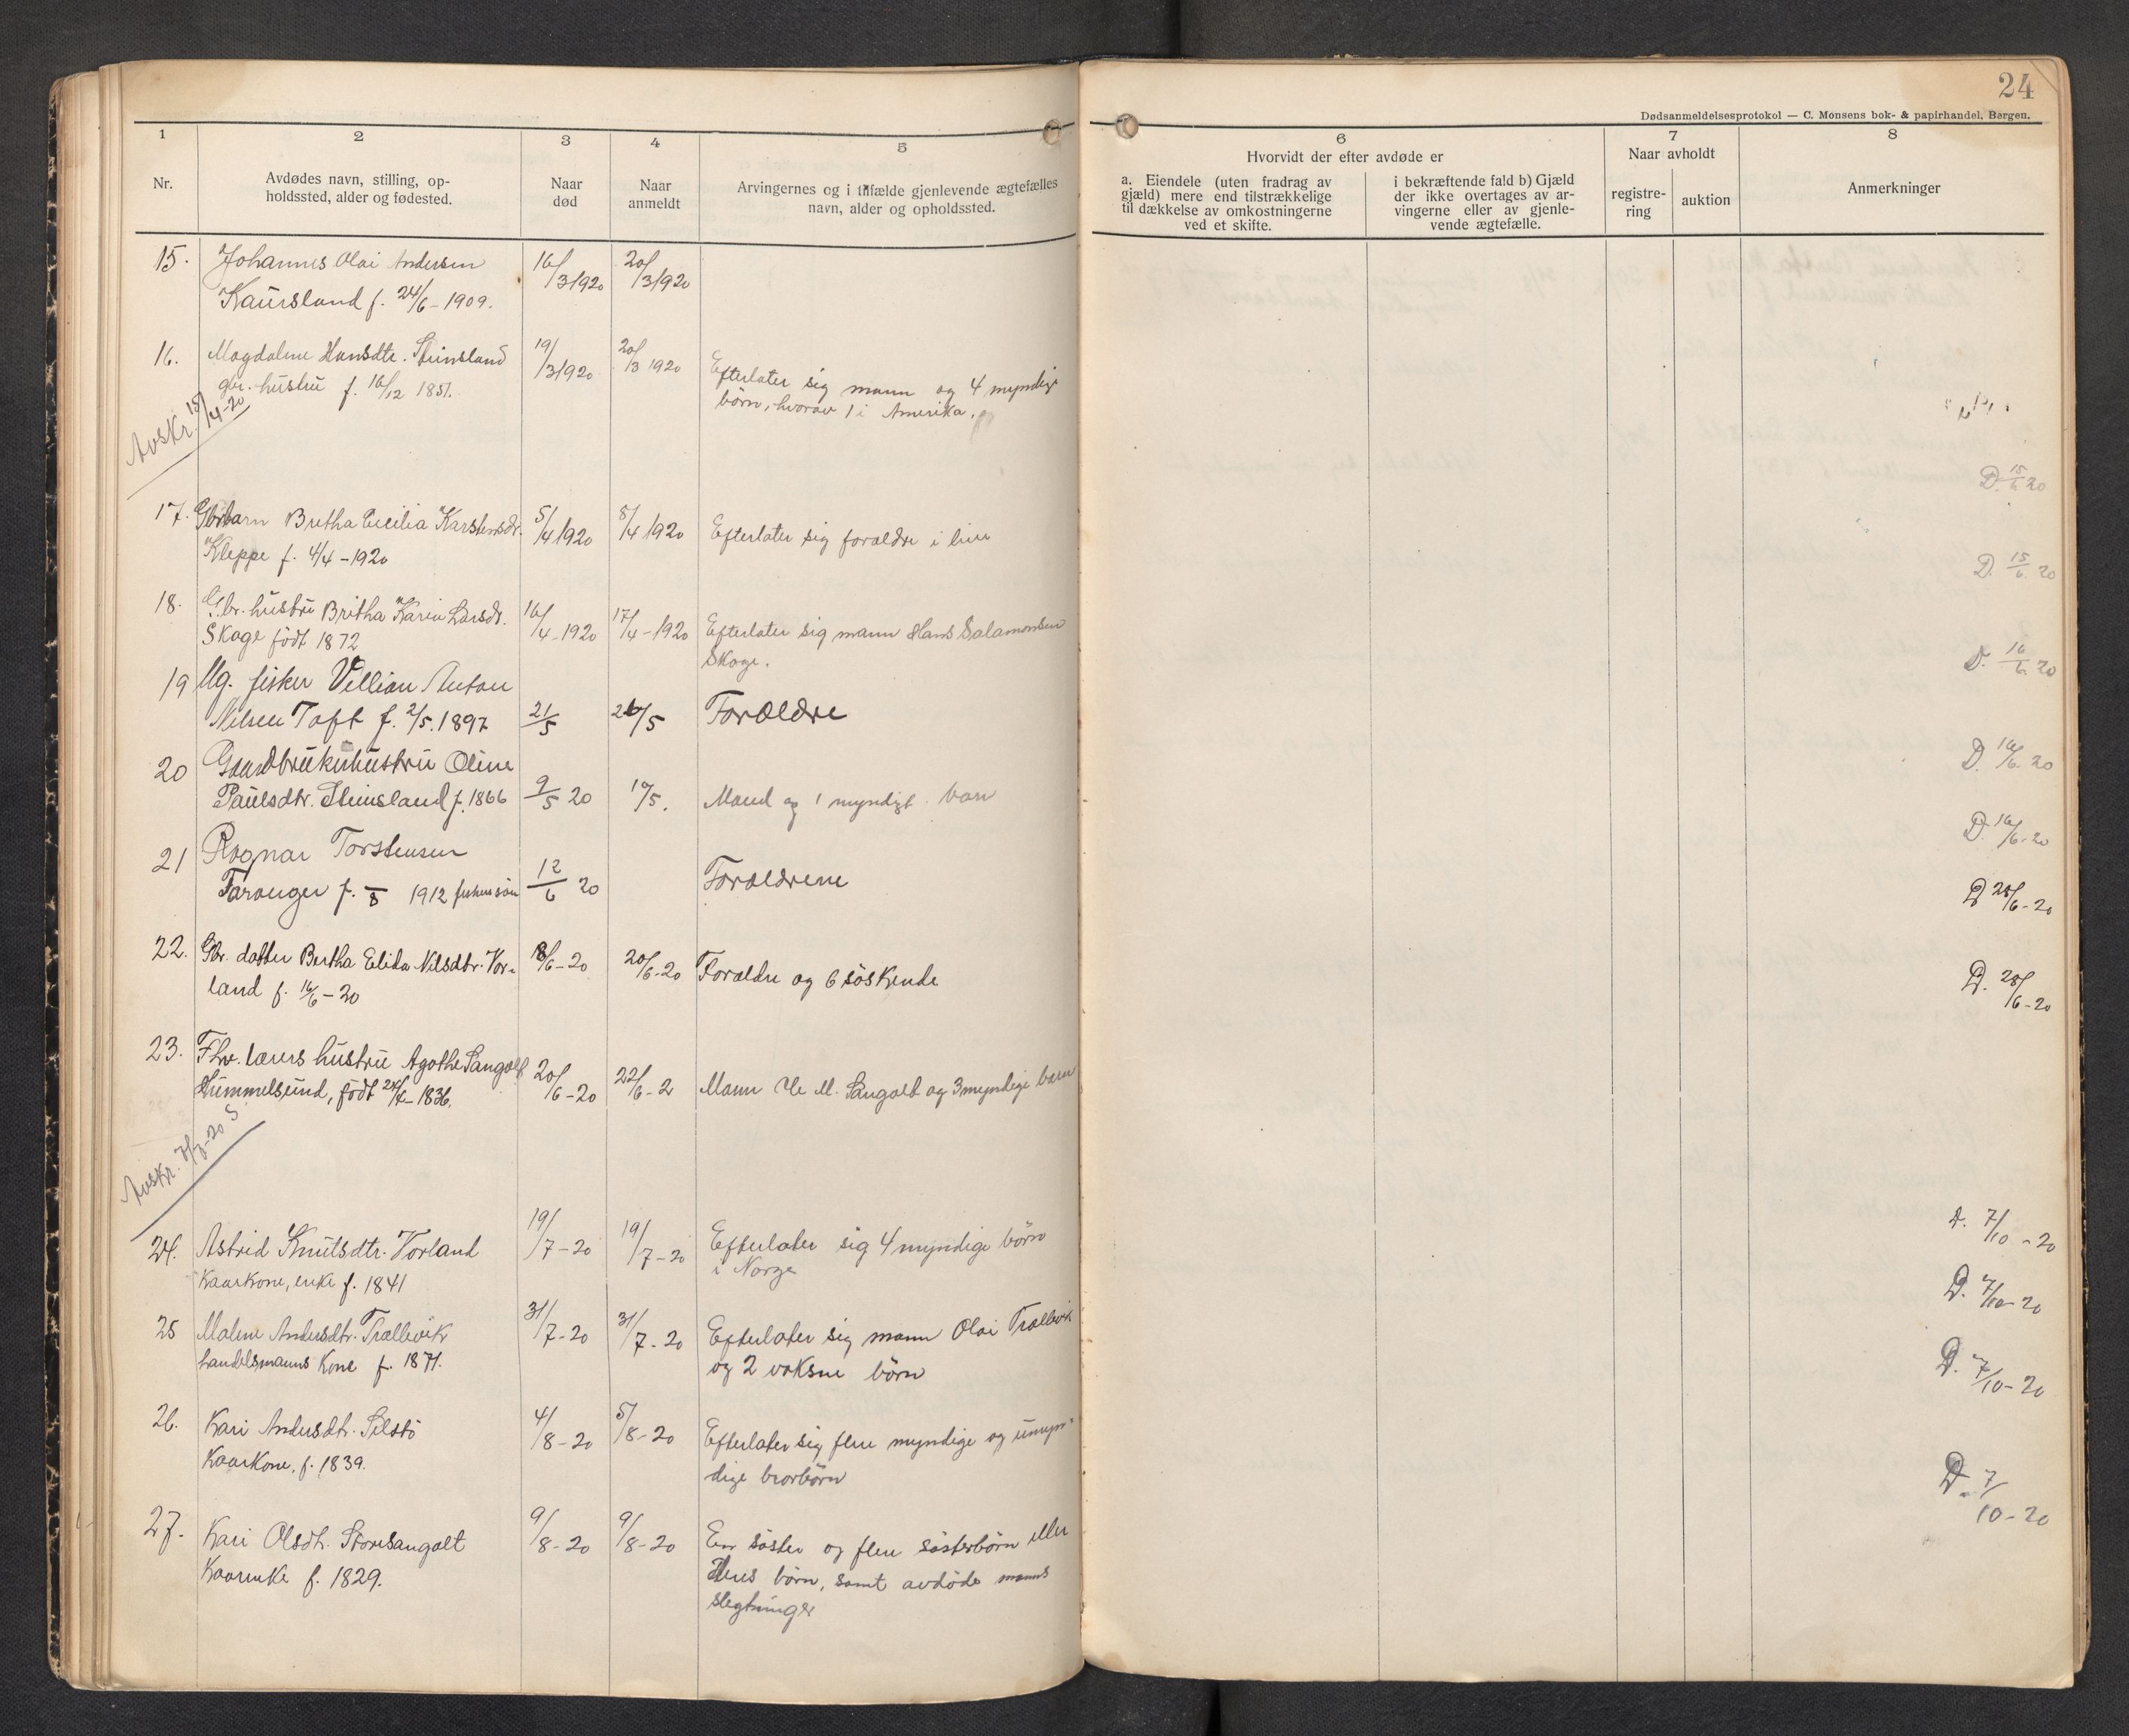 24
Dødsanmeldelsesprotokol — C. Monsens bok- & papirhandel, Bergen.
1
2
3
4
5
6
7
8
Nr.
Avdødes navn, stilling, op-
holdssted, alder og fødested.
Naar
død
Naar
anmeldt
Arvingernes og i tilfælde gjenlevende ægtefælles
navn, alder og opholdssted.
Hvorvidt der efter avdøde er
a. Eiendele (uten fradrag av
gjæld) mere end tilstrækkelige
til dækkelse av omkostningerne
ved et skifte.
i bekræftende fald b) Gjæld
der ikke overtages av ar-
vingerne eller av gjenle-
vende ægtefælle.
Naar avholdt
registre-
ring
auktion
Anmerkninger
15. Johannes Olai Andersen 16/3 1920 20/3 1920
Kaursland f. 24/6 - 1909.
16. Magdalene Hansdtr. Steinsland 19/3 1920 20/3 1920 Efterlater sig mann og 4 myndige
gbr. hustru f. 16/12 1851. børn, hvorav 1 i Amerika.
Avskr. 15/4-20
D. 15/6 20
17. Gbrbarn Bertha Cecilia Karstensdr. 5/4 1920 8/4 1920 Efterlater sig forældre i live
Kleppe f. 4/4 - 1920
D. 15/6 20
18. Gbr. hustru Britha Karin Larsdr. 16/4 - 1920 17/4 - 1920 Efterlater sig mann Hans Salamonsen
Skoge født 1872 Skoge.
D. 16/6 20
19 Ug. fisker Villian Anton
Nilsen Toft f. 2/5. 1897 21/5 26/5 Forældre
D. 16/6. 20
20 Gaardbrukerhustru Oline
Paulsdtr. Steinsland f. 1866 9/5 20 19/5. Mand og 1 myndigt barn
D. 16/6-20
21 Ragnar Torstensen
Toranger f. /8 1912 fiskersøn 12/6 20 Forældrene
D 28/6-20
22. Gbr. datter Bertha Elida Nilsdtr. Vor- 18/6-20 20/6-20 Forældre og 6 søskende
land f. 16/6-20
D. 28/6-20
23. Fhv. lærers hustru Agathe Sangolt 20/6-20 22/6-2 Mann M. Sangolt og 3 myndige barn
Hummelsund, født 24/4-1836.
Avskr. 7/7-20 S
24. Astrid Knutsdtr. Vorland 19/7-20 19/7-20 Efterlater sig 4 myndige børn
Kaarkone, enke f. 1841 i Norge
D. 7/10-20
25 Malene Andersdtr. Trællevik 31/7-20 31/7-20 Efterlater sig mann Olai Trællevik
handelsmanns kone f. 1871. og 2 voksne børn
D. 7/10-20
26. Kari Andersdtr. Selstø 4/8-20 5/8-20 Efterlater sig flere myndige og umyn-
Kaarkone, f. 1839. dige brorbørn
D. 7/10-20
27. Kari Olsdtr. Storesangolt 9/8-20 9/8-20 En søster og flere søsterbørn eller
Kaarenke f. 1829. deres børn, samt avdøde manns
slegtninger
D. 7/10-20